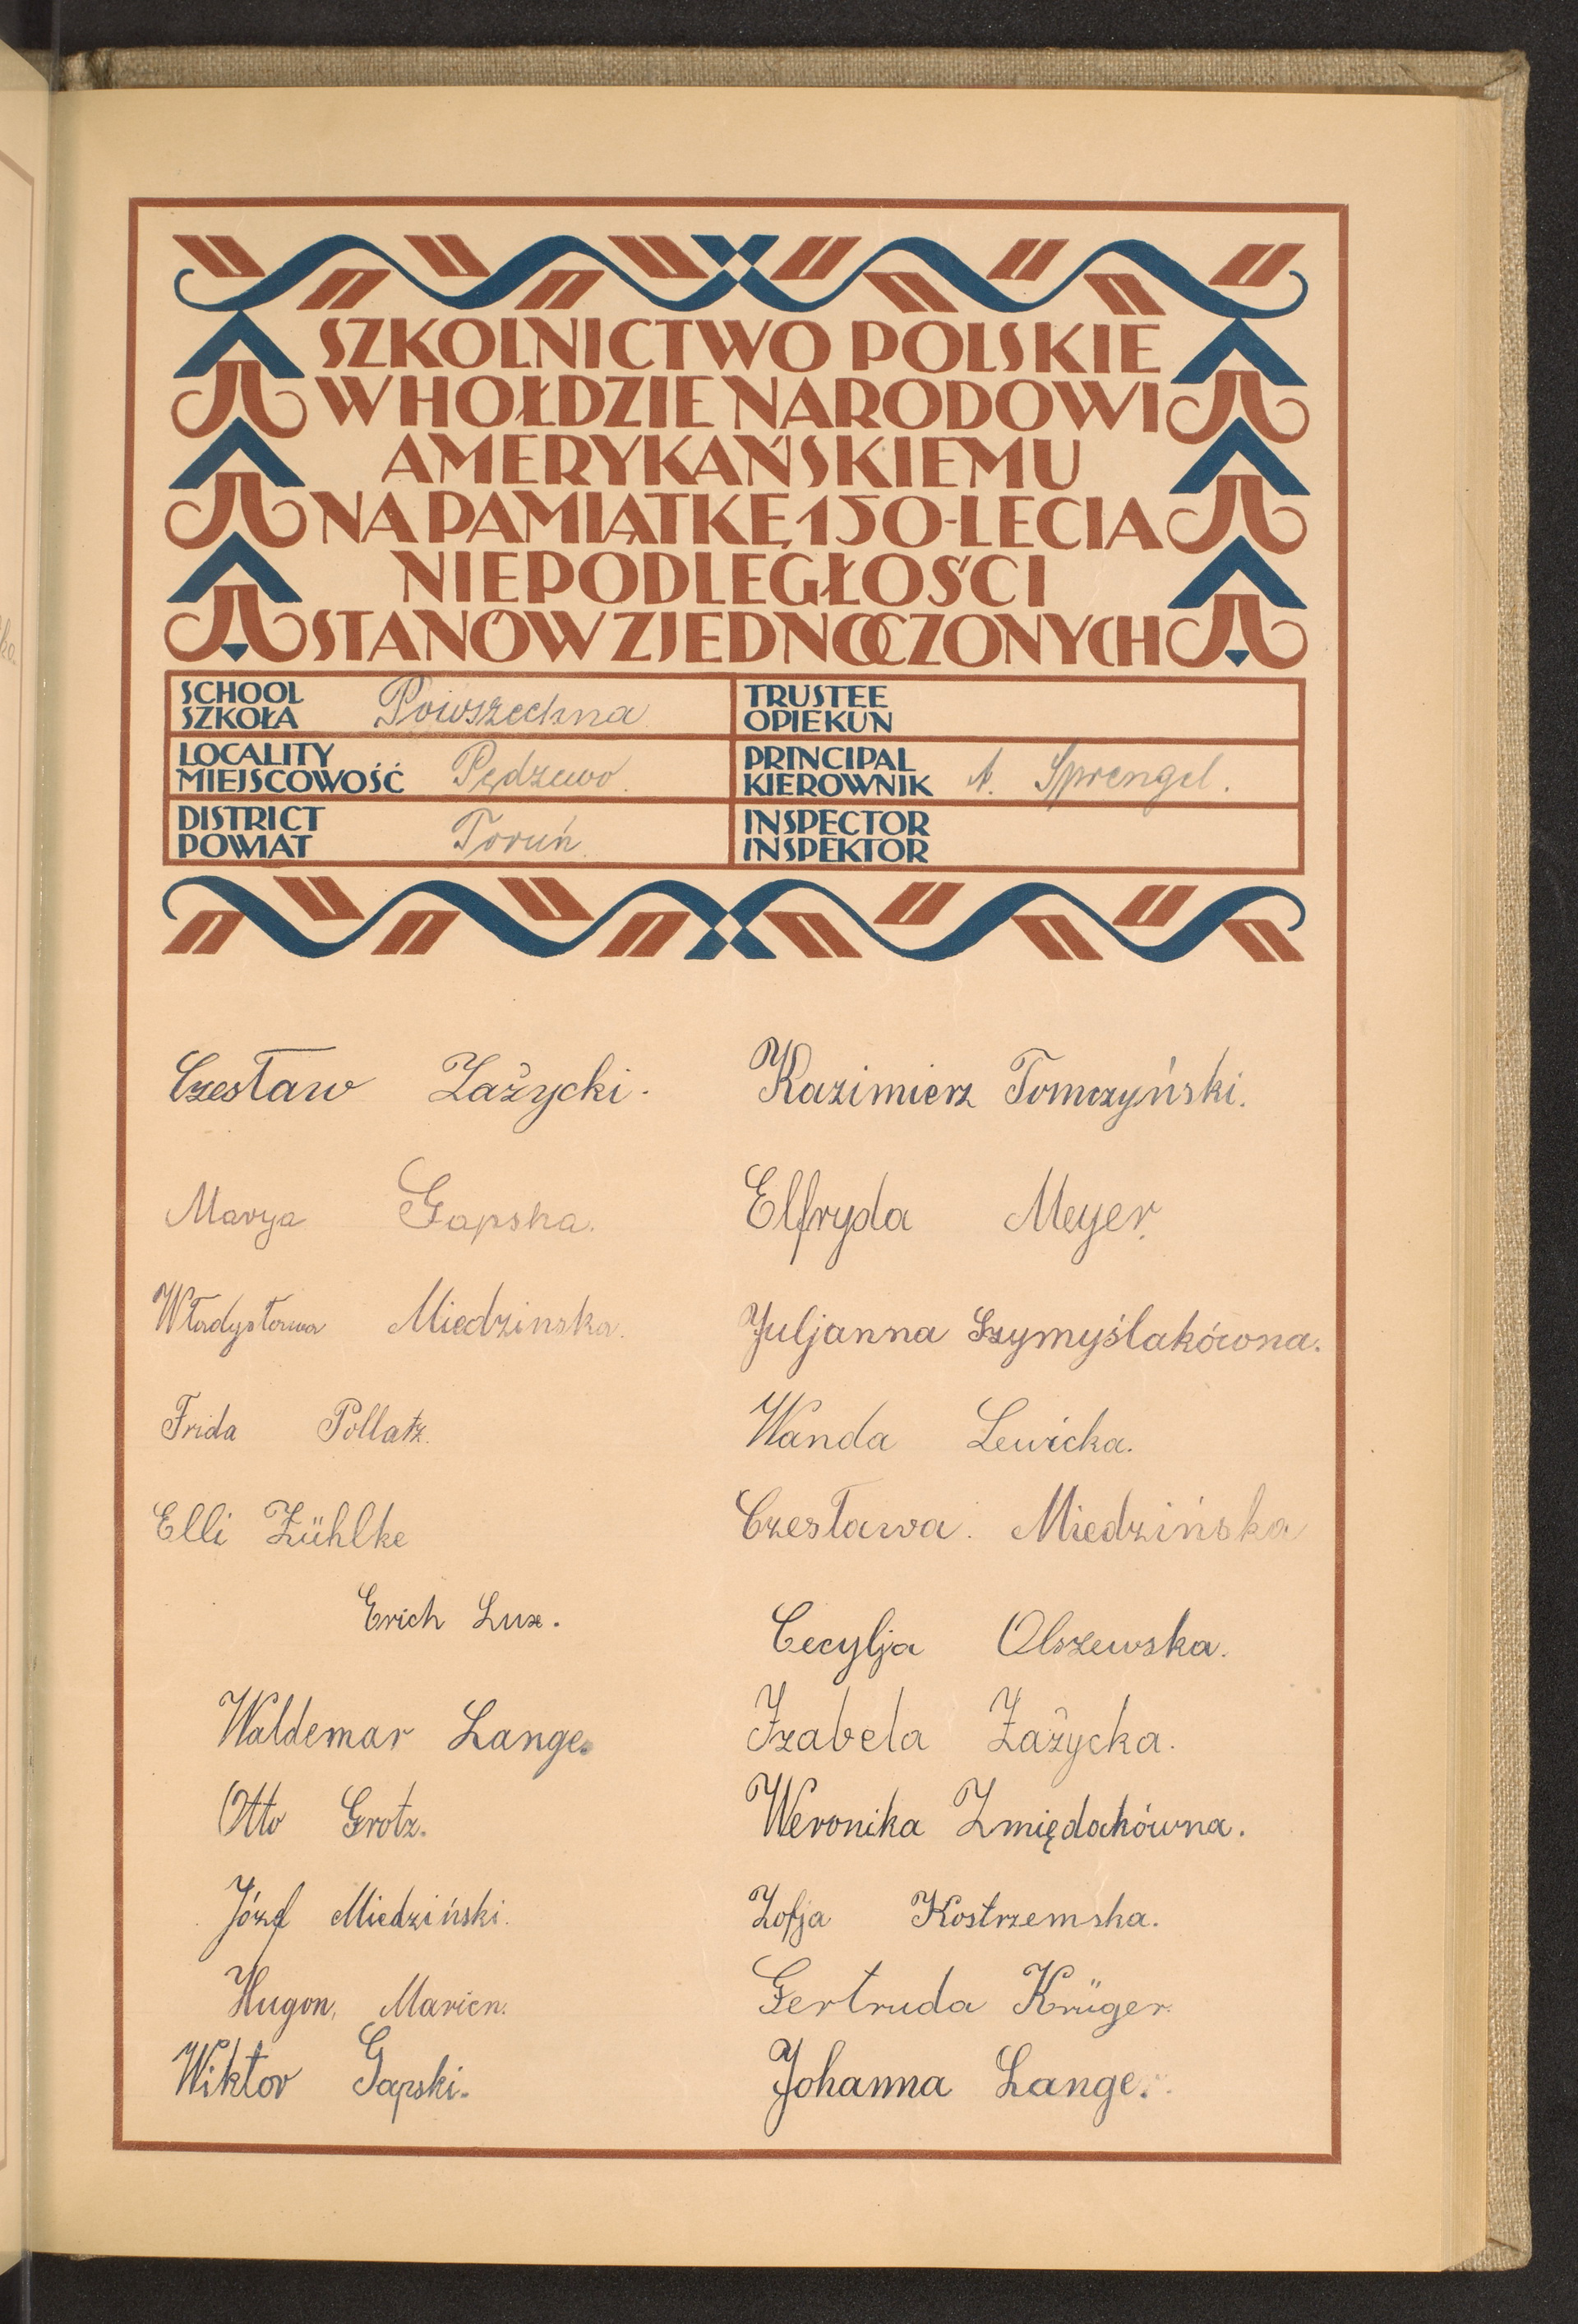 SZKOLNICTWO POLSKIE
W HOŁDZIE NARODOWI
AMERYKAŃSKIEMU
NA PAMIĄTKĘ 150-LECIA
NIEPODLEGŁOŚCI
STANÓW ZJEDNOCZONYCH
SCHOOL
SZKOŁA Powszechna
TRUSTEE
OPIEKUN
LOCALITY
MIEJSCOWOŚĆ Pędzewo.
PRINCIPAL
KIEROWNIK A. Sprengel.
DISTRICT
POWIAT Toruń.
INSPECTOR
INSPEKTOR
Czesław Zażycki.
Marya Gapska.
Władysława Miedzinska.
Frida Pollatz.
Elli Zühlke
Erich Lux.
Waldemar Lange.
Otto Grotz.
Józef Miedziński.
Hugon, Marien.
Wiktor Gapski.
Kazimierz Tomczyński.
Elfryda Meyer.
Juljanna Szymyślakówna.
Wanda Lewicka.
Czesława. Miedzińska
Cecylja Olszewska.
Izabela Zażycka.
Weronika Zmiędakówna.
Zofja Kostrzemska.
Gertruda Krüger.
Johanna Lange.